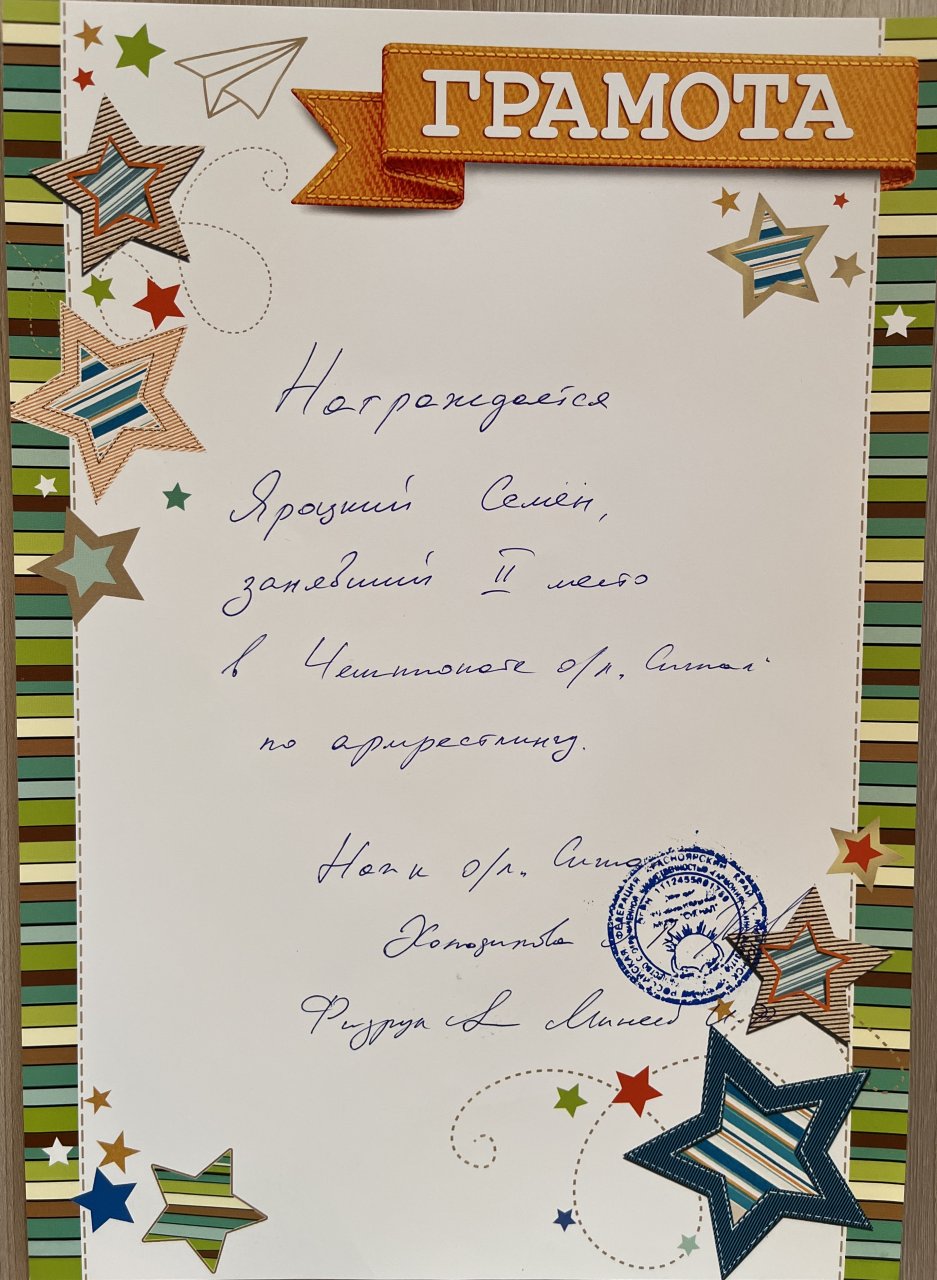 ГРАМОТА
Награждается
Яроцкий Семён,
занявший II место
в Чемпионате о/л "Сигнал"
по армрестлингу.
Нач-к о/л "Сигнал"
Физрук Минеев
РОССИЙСКАЯ ФЕДЕРАЦИЯ КРАСНОЯРСКИЙ КРАЙ
"СИГНАЛ"